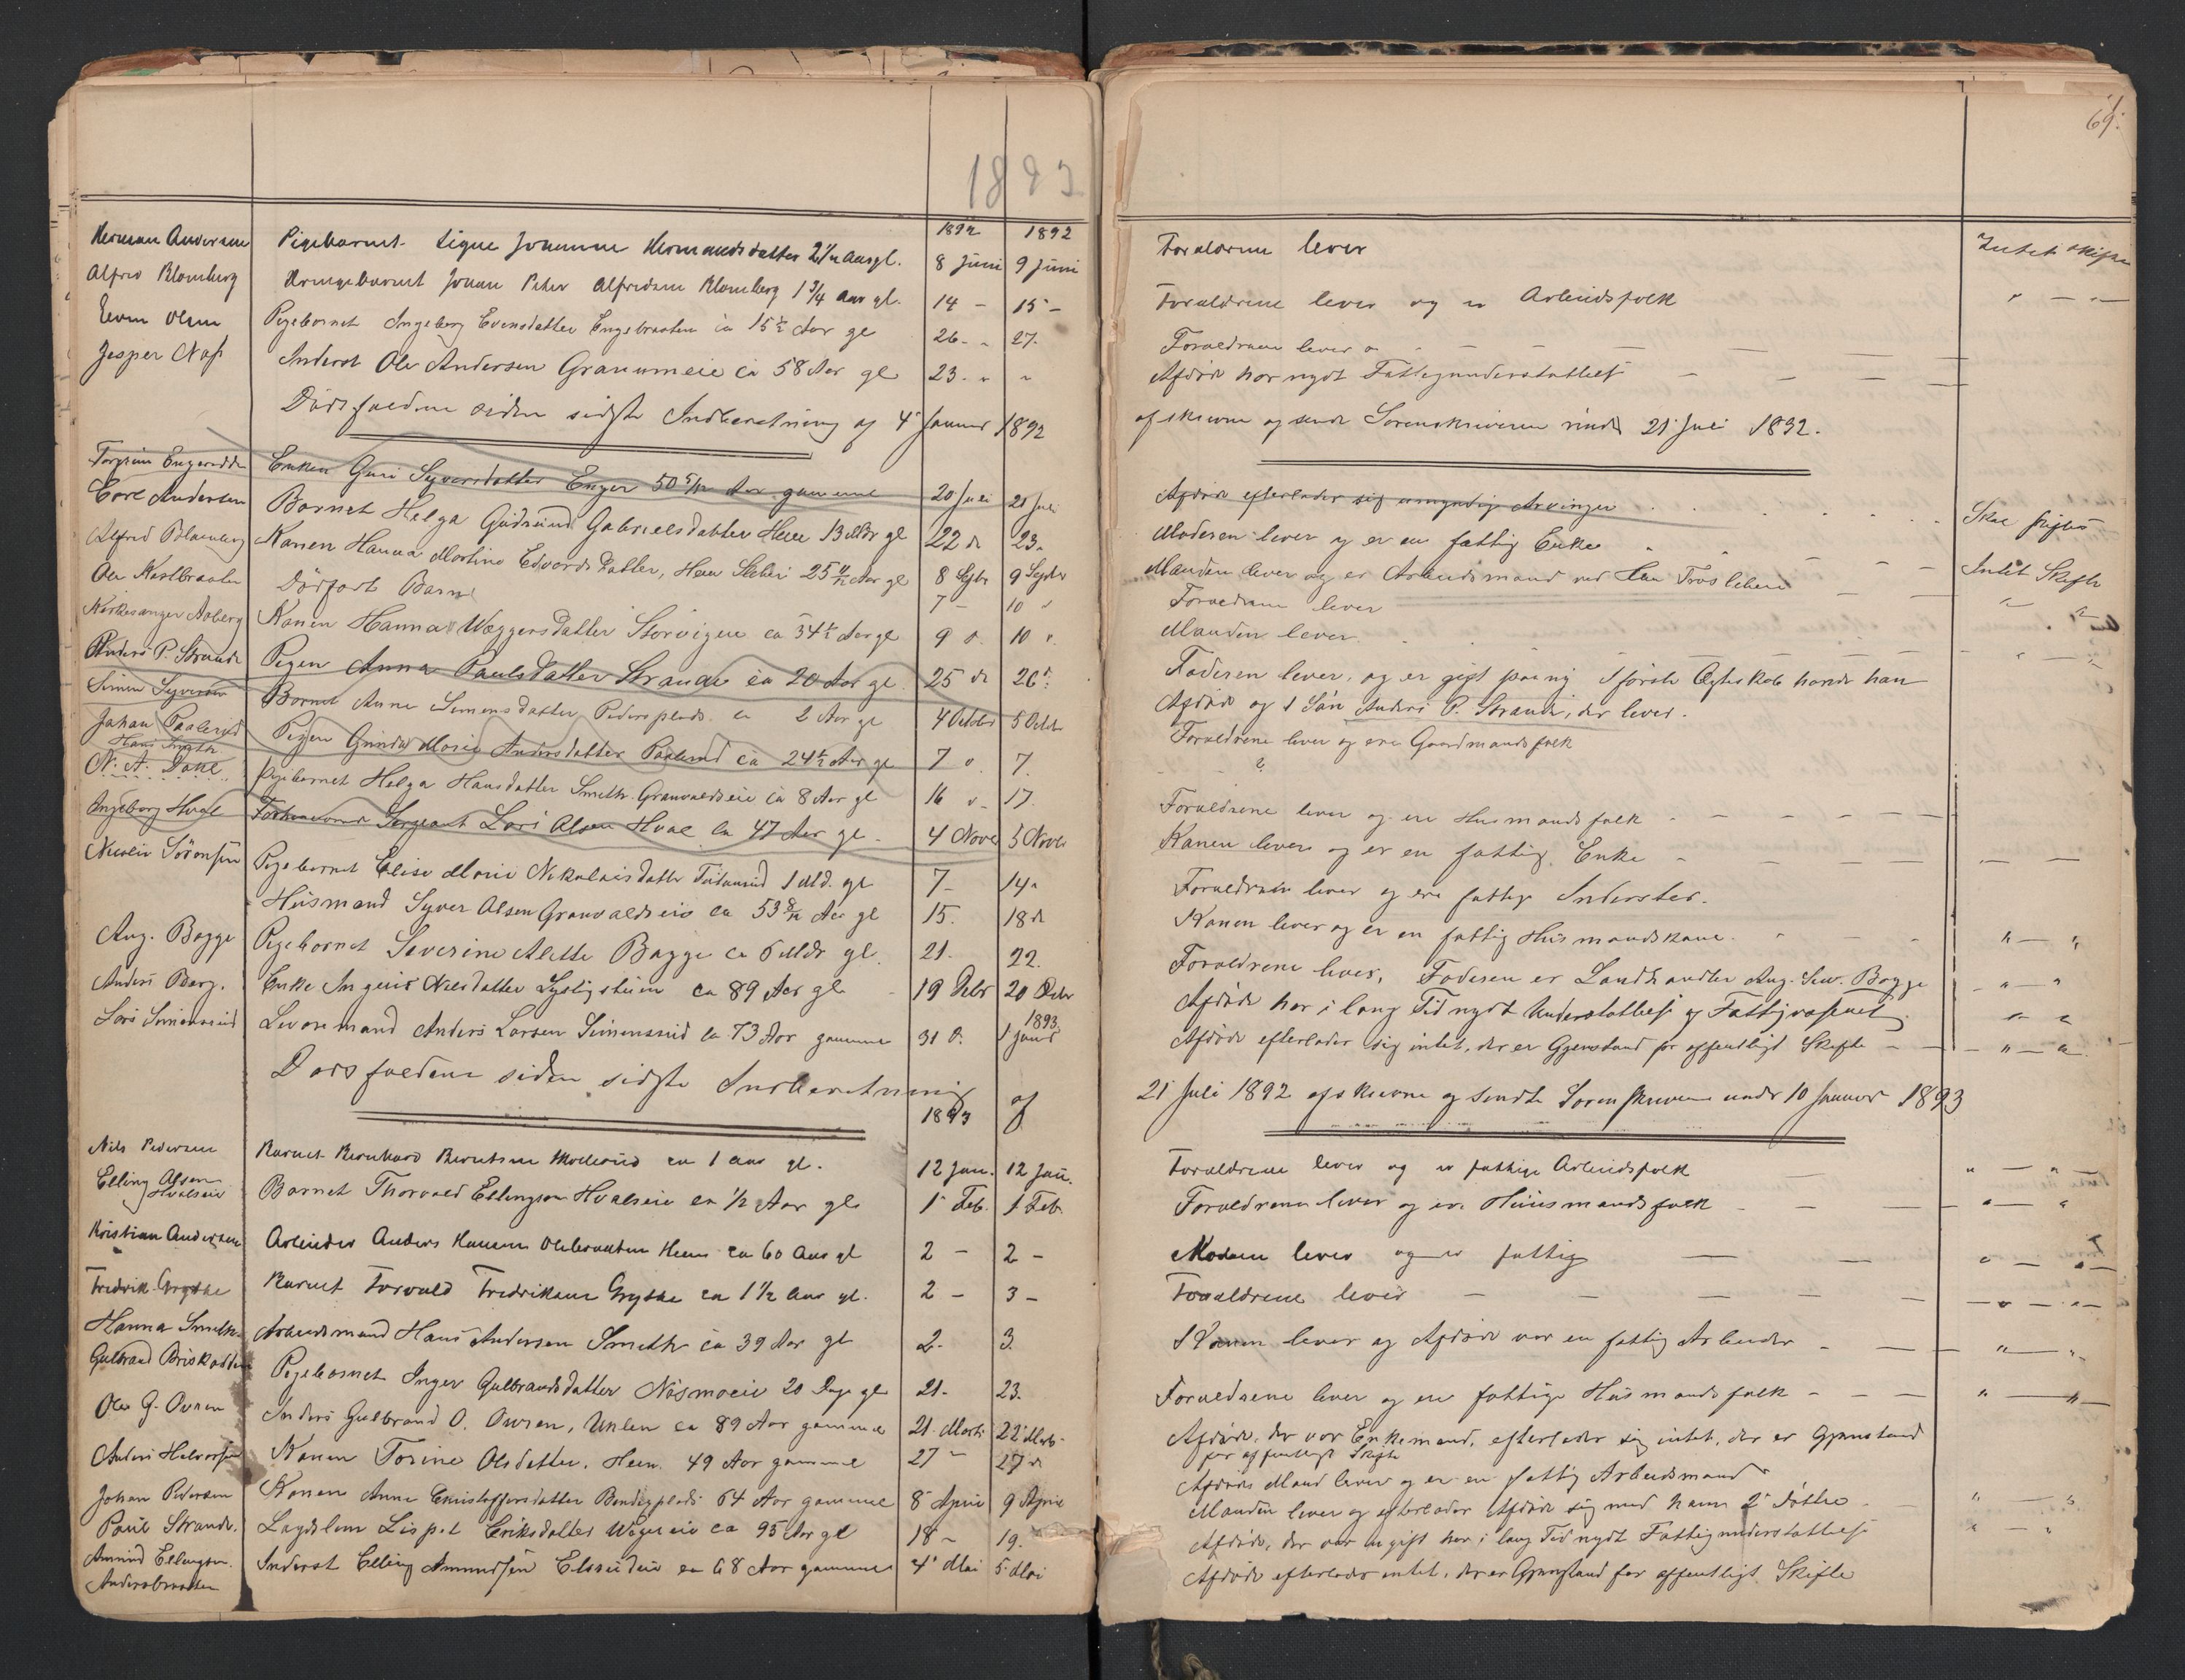 1893
61.
1892 1892
Herman Andersen Pigebarnet Signe Johanne Hermandsdatter 2 1/2 Aar gl. 8 Juni 9 Juni Forældrene lever Intet Skifte
Alfred Blomberg Drengebarnet Johan Peter Alfredsen Blomberg 1 3/4 Aar gl. 14 - 15 - Forældrene lever og er Arbeidsfolk " — " —
Even Olsen Pigebarnet Ingeborg Evensdatter Engebraaten ca 15 1/2 Aar gl 26 - " 27. Forældrene lever
Jesper Næs Inderst Ole Andersen Granumeie ca 58 Aar gl 23 - " " Afdøde har nydt Fattigunderstøttelse
Dødsfaldene siden sidste Indberetning af 4 Januar 1892 afskrevne og sendt Sorenskriveren under 21 Juli 1892.
Enken Guri Syversdatter Enger 50 5/12 Aar gammel 20 Juli 21 Juli Afdøde efterlader sig umyndige Arvinger Skal skiftes
Carl Andersen Barnet Helga Gudrund Gabrielsdatter Heen 13 Mdr gl 22 d 23 " Moderen lever og er en fattig Enke
Alfred Blomberg Konen Hanna Martine Edvardsdatter, Heen 25 11/12 Aar gl 8 Septbr 9 Septbr Manden lever og er Arbeidsmand ved Intet Skifte
Ole Kastbraaten Dødfødt Barn 7 - 10 " Forældrene lever " "
Kirkesanger Aaberg Konen Hanna Wæggersdatter Storvigen ca 34 1/2 Aar gl 9 d. 10 " Manden lever.
Anders P. Strande Pigen Anna Paulsdatter Strande ca 20 Aar gl. 25 d 26 d. Faderen lever, og er gift paany I første Ægteskab havde han
Afdøde og 1 Søn Anders P. Strande, der lever.
Simen Syversen Barnet Anne Simensdatter Pedersplads ca 2 Aar gl 4 October 5 Octbr Forældrene lever og ere Gaardmandsfolk
Johan Paalerud Pigen Gunda Marie Andersdatter Paalerud ca 24 1/2 Aar gl 7 d. 7. ?
Hans Smeth
N. A. Dahl Pigebarnet Helga Hansdatter Smeth. Granvoldseie ca 8 Aar gl 16 d - 17. Forældrene lever og ere Husmandsfolk
Ingeborg Hval Forhenværende Sergeant Lars Olsen Hval ca 47 Aar gl. 4 Novbr 5 Novbr Konen lever og er en fattig Enke
Nicolai Sørensen Pigebarnet Elise Marie Nikolaisdatter 1 Md. gl 7 - 14 " Forældrene lever og ere fattige Inderster.
Husmand Syver Olsen Granvoldseie ca 53 8/12 Aar gl 15. 18 d Konen lever og er en fattig Husmandskone. " — "
Aug. Bagge Pigebarnet Severine Alette Bagge ca 6 Mdr gl. 21. 22. Forældrene lever, Faderen er Landhandler Aug. Sev. Bagge " — "
Anders Berg. Enke Inger Nilsdatter Lystigsteien ca 89 Aar gl 19 Debr 20 Debr Afdøde har i lang Tid nydt Understøttelse af Fattigvæsenet. " "
1893
Lars Simensrud Livøremand Anders Larsen Simensrud ca 73 Aar gammel 31 d. 1 Janr Afdøde efterlader sig intet, der er Gjenstand for offentligt Skifte " — "
Dødsfaldene siden sidste Indberetning af 21 Juli 1892 afskrevne og sendte Sorenskriveren under 10 Januar 1893
1893
Nils Pedersen Barnet Bernhard Berntsen Mollerud ca 1 Aar gl. 12 Jan. 12 Jan. Forældrene lever og er fattige Arbeidsfolk " — "
Elling Olsen Hvalseie Barnet Thorvald Ellingsen Hvalseie ca 1/2 Aar gl. 1 Feb. 1 Feb. Forældrene lever og ere Husmandsfolk " — "
Kristian Andersen Arbeider Anders Hansen Olebraaten Heen ca 60 Aar gl 2 - 2 - lever og er fattig
Fredrik Grythe Barnet Torvald Fredriksen Grythe ca 1 1/2 Aar gl. 2 - 3 - Forældrene lever
Hanna Smeth Arbeidsmand Hans Andersen Smeth ca 39 Aar gl 2 - 3. Konen lever og Afdøde var en fattig Arbeider " — "
Gulbrand Briskodden Pigebarnet Inger Gulbrandsdatter Næsmoeie 20 Dage gl 21 - 23. Forældrene lever og ere fattige Husmandsfolk " — "
Ole G. Ovren Inderst Gulbrand O. Ovren, ca 89 Aar gammel 21 Marts 22 Marts Afdøde, der var Enkemand, efterlader sig intet, der er Gjenstand
for offentligt Skifte
Anders Halvorsen Konen Torine Olsdatter, Heen. 49 Aar gammel 27 - 27 d Afdødes Mand lever og er en fattig Arbeidsmand
Johan Pedersen Konen Anne Christoffersdatter Bendigplads 64 Aar gammel 8 April 9 April Manden lever og efterlader Afdøde sig med ham 2 Døttre " — "
Paul Strande. Lægdslem Lisbet Eriksdatter ca 95 Aar gl 18 - 19. Afdøde, der var ugift har i lang Tid nydt Fattigunderstøttelse " — "
Amund Ellingsen. Andersbraaten Inderst Elling Amundsen Elsrudeie ca 68 Aar gammel 4 Mai 5 Mai Afdøde efterlader intet, der er Gjenstand for offentligt Skifte